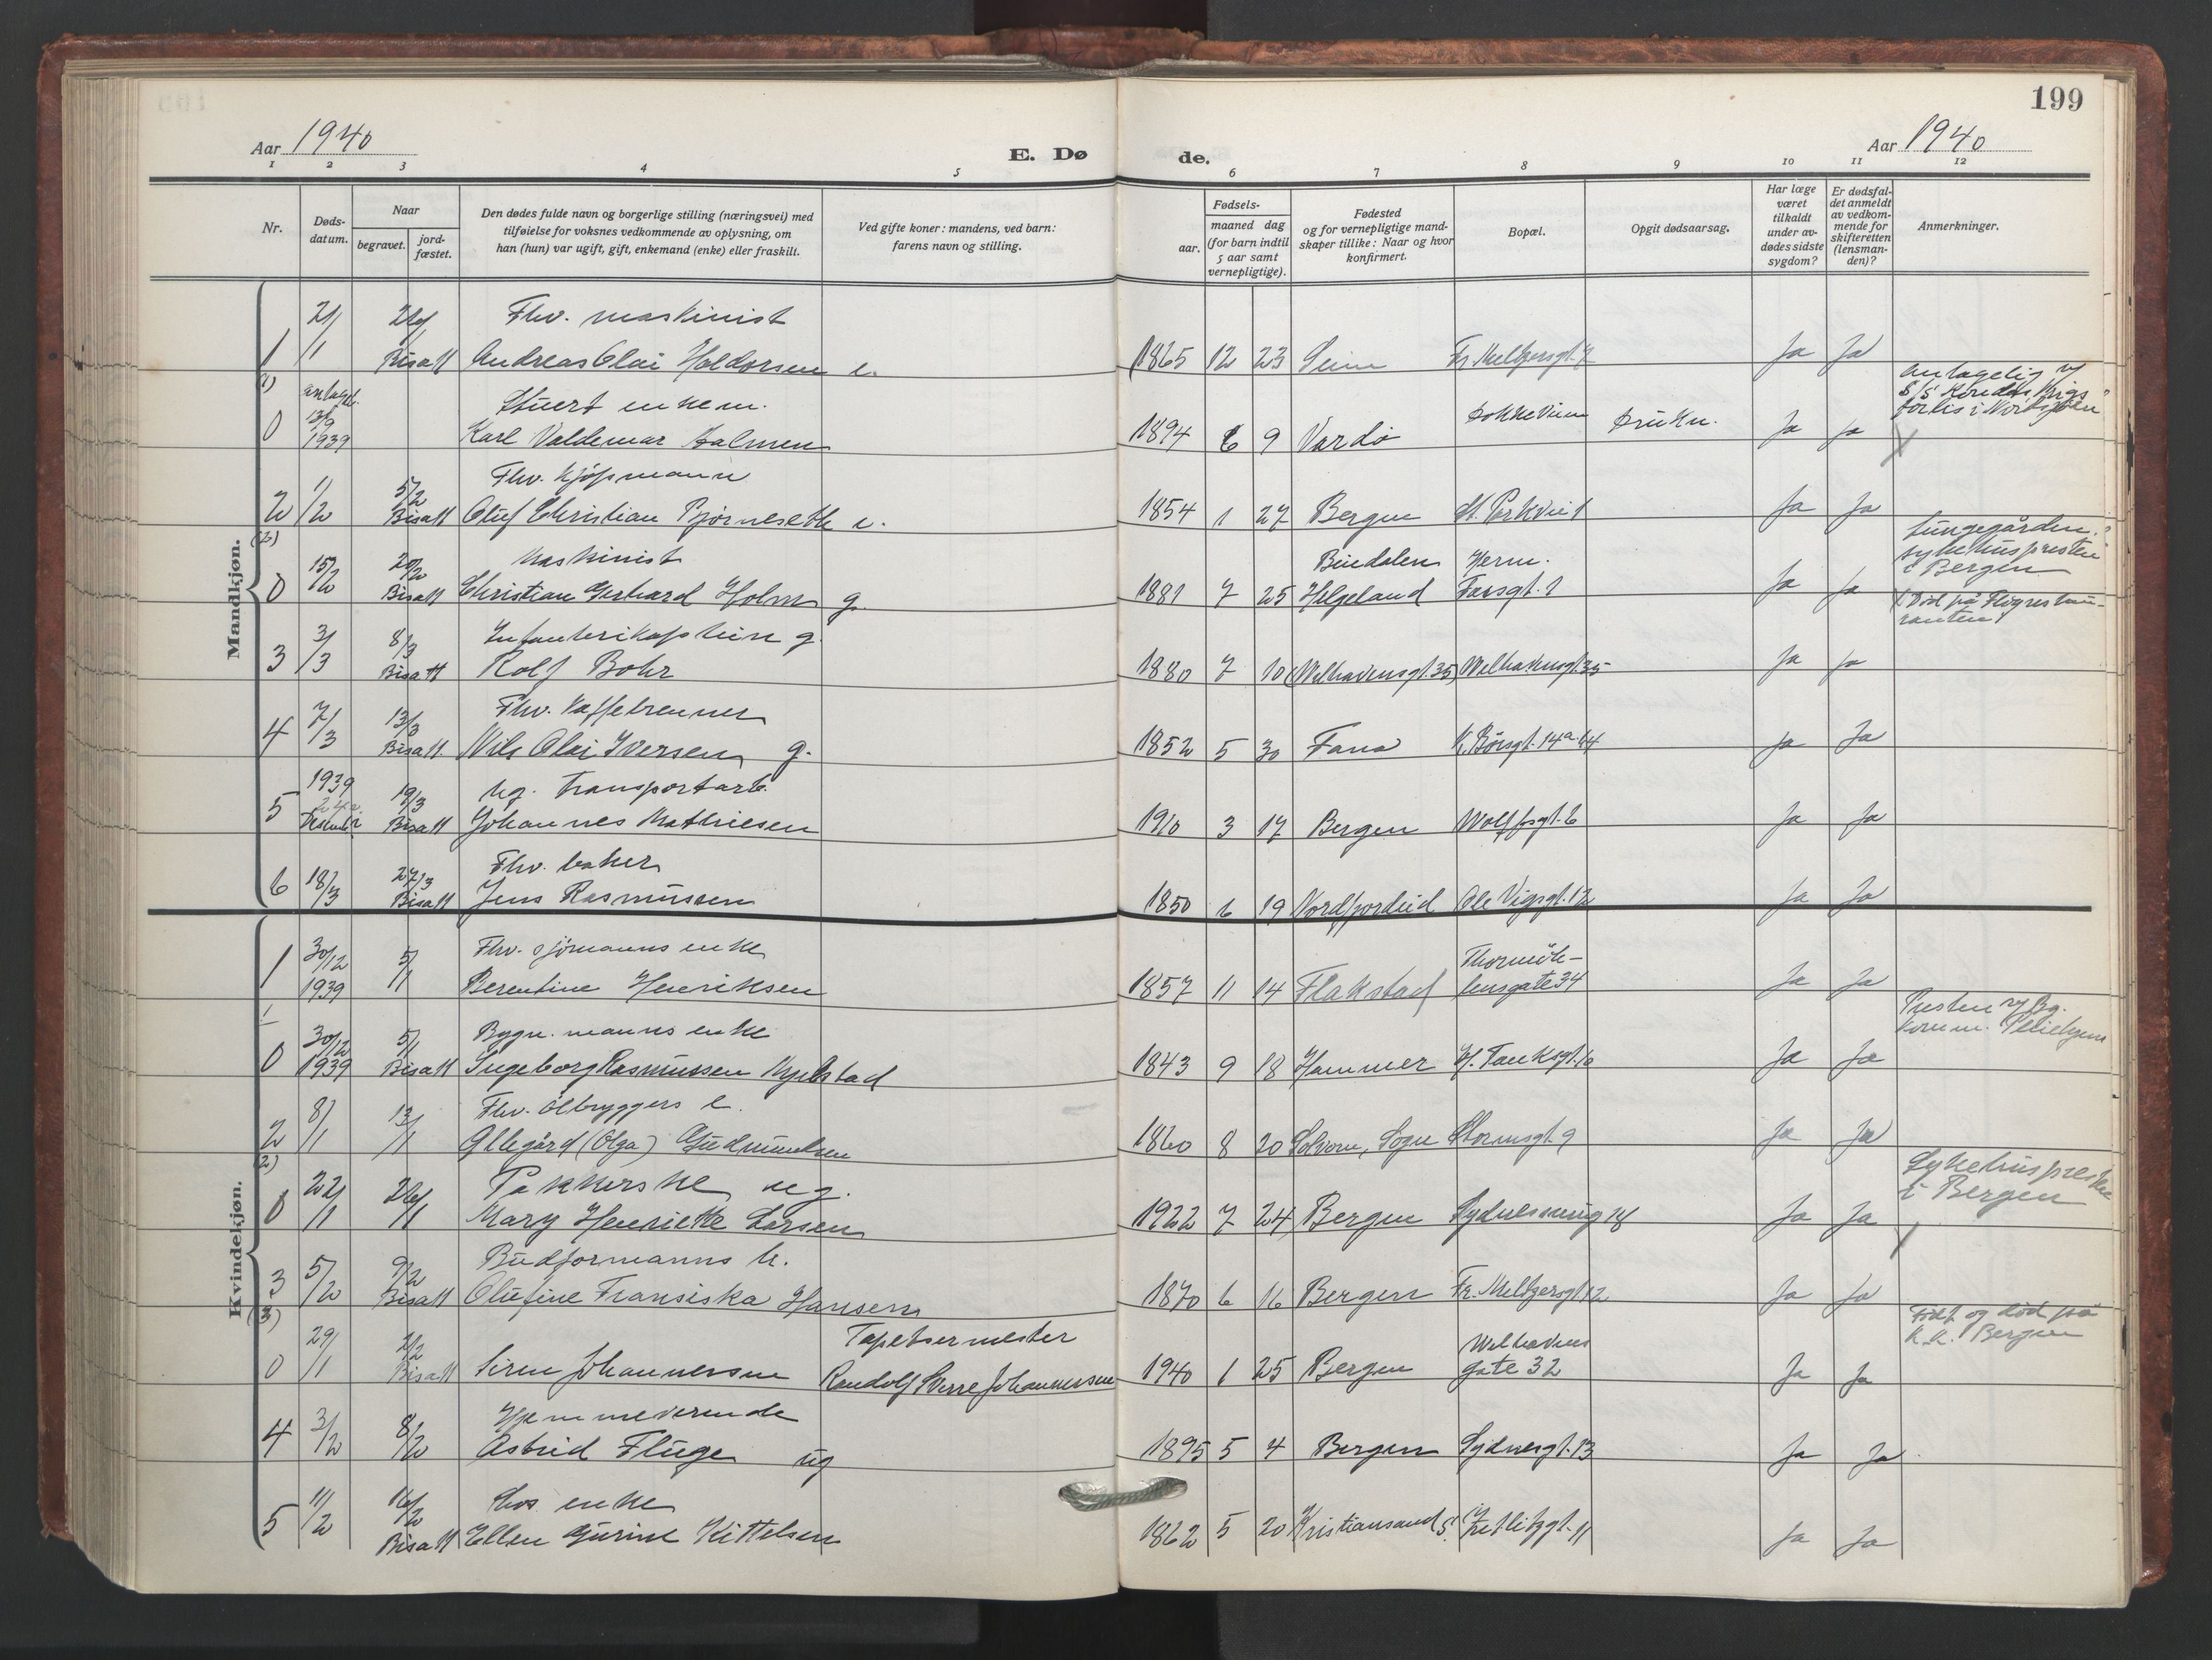 199
Aar 1940
E. Dø
de.
Aar 1940
1 2 3 4 5 6 7 8 9 10 11 12
Nr.
Døds-
datum.
Naar
begravet.
jord-
fæstet.
Den dødes fulde navn og borgerlige stilling (næringsvei) med
tilføielse for voksnes vedkommende av oplysning, om
han (hun) var ugift, gift, enkemand (enke) eller fraskilt.
Ved gifte koner: mandens, ved barn:
farens navn og stilling.
Fødsels-
aar.
maaned dag
(for barn indtil
5 aar samt
vernepligtige).
Fødested
og for vernepligtige mand-
skaper tillike: Naar og hvor
konfirmert.
Bopæl.
Opgit dødsaarsag.
Har læge
været
tilkaldt
under av-
dødes sidste
sygdom?
Er dødsfal-
det anmeldt
av vedkom-
mende for
skifteretten
(lensman-
den)?
Anmerkninger.
Mandkjøn.
21/ 26/ Fhv. maskinist
1 /1 Bisatt Andreas Olai Haldorsen e. 1865 12 23 Seim Fr. Meltzersgt. 7 Ja Ja
(1) antagel. Stuert enkem. Antagelig
0 13/9 1939 Karl Valdemar 1894 6 9 Vardø Dokkeveien Drukn. Ja Ja
forlis i Nordsjøen
1/ 5/2 Fhv. kjøpmann
2 /2 Bisatt Oluf Christian Bjørneseth e. 1854 1 27 Bergen St. Parkvei 1 Ja Ja
(2) Maskinist Bindalen Herm. Lungegården
sykehuspresten
i Bergen
0 15/2 20/2 Bisatt Christian Gerhard Holm g. 1881 7 25 Helgeland Fossgt. 1 Ja Ja
3/ 8/3 Infanterikaptein g. (Død på Fløyrestau-
ranten)
3 /3 Bisatt Rolf Bohr 1880 7 10 (Welhavensgt. 35) Welhavensgt. 35 Ja Ja
7/ 13/3 Fhv. Kaffebrenner
4 /3 Bisatt Nils Olai Iversen g. 1852 5 30 Fana Ja Ja
1939 19/3 ug. Transportarb.
5 Desember Bisatt Johannes Mathiesen 1910 3 17 Bergen Wolffsgt. 6 Ja Ja
27/3 Fhv. baker
6 18/3 Bisatt Jens Rasmussen 1850 6 19 Nordfjordeid Ole Vigsgt. 12 Ja Ja
Kvindekjøn.
30/12 5/ Fhv. sjømanns enke Thormøh-
1 1939 /1 Berentine Henriksen 1857 11 14 Flakstad lensgate 34 Ja Ja
30/12 5/ Bygn. manns enke Presten v/ Bg.
komm. Pleiehjem
0 1939 Bisatt Ingeborg Rasmussen Myrstad 1843 9 18 Hammer Ja Ja
8/ 13/ Fhv. ølbryggers e.
2 /1 /1 Allegård (Olga) Gudmundsen 1860 8 20 Solvorn, Sogn Stormsgt. 9 Ja Ja
(2) 22/ 26/ Pakkerske ug. Sykehuspresten
i Bergen
0 /1 /1 Mary Henriette Larsen 1922 7 24 Bergen Sydnessmug 18 Ja Ja
5/ 9/2 Budformanns h.
3 /2 Bisatt Olufine Fransiska Hansen 1870 6 16 Bergen Fr. Meltzersgt 12 Ja Ja
(3) 29/ 2/2 Tapetsermester Welhavens Født og død på
K.K. Bergen
0 /1 Bisatt Siren Johannessen Randolf Sverre Johannessen 1940 1 25 Bergen gate 32 Ja Ja
3/ 8/ Hjemmeverende
4 /2 /2 Astrid Fluge ug 1895 5 4 Bergen Sydnesgt. 13 Ja Ja
11/ 16/2 Los. enke
5 /2 Bisatt Ellen Gurine Kittelsen 1862 5 20 Kristiansand S. Zetlitzgt. 11 Ja Ja